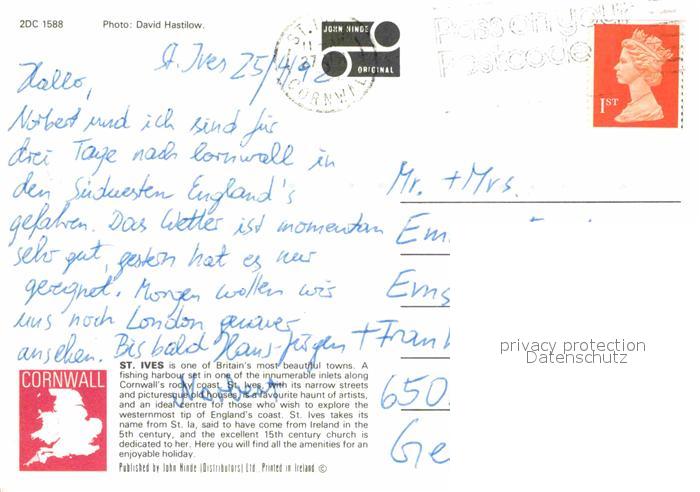 2DC 1588 Photo: David Hastilow.
JOHN HINDE
ORIGINAL
ST. IV
CORNWALL
Pass on your
Postcode
1ST
St. Ives 25/4/92
Hallo,
Norbert und ich sind für
drei Tage nach Cornwall in
den Südwesten England's
gefahren. Das Wetter ist momentan
sehr gut, gestern hat es nur
geregnet. Morgen wollen wir
uns noch London genauer
ansehen. Bis bald Hans-Jürgen +
Norbert
Mr. + Mrs.
Em
Erns
Fran
650
Ge
privacy protection
Datenschutz
CORNWALL
ST. IVES is one of Britain's most beautiful towns. A
fishing harbour set in one of the innumerable inlets along
Cornwall's rocky coast. St. Ives, with its narrow streets
and picturesque old houses, is a favourite haunt of artists,
and an ideal centre for those who wish to explore the
westernmost tip of England's coast. St. Ives takes its
name from St. Ia, said to have come from Ireland in the
5th century, and the excellent 15th century church is
dedicated to her. Here you will find all the amenities for an
enjoyable holiday.
Published by John Hinde (Distributors) Ltd. Printed in Ireland ©